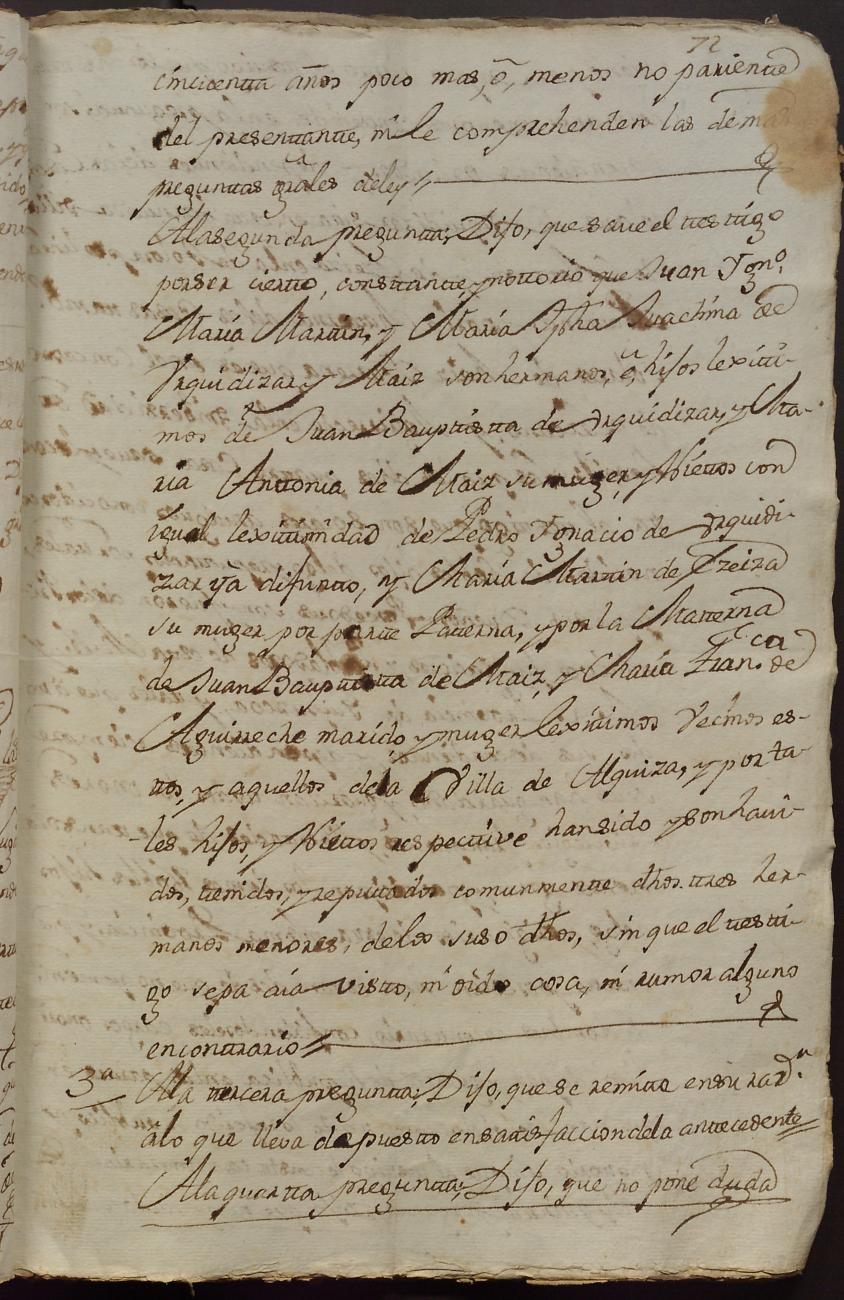 72
cinicentta años poco mas, ô, menos no pariente
del presenttantte, ni le comprehenden las demas
preguntas grâles de ley
A la segunda pregunta, Dijo, que save el testtigo
por ser cierto, constante, y nottorio que Juan Ygnº.
Maria Martin, y Maria Jpha Juachina de
Vrquidizar, y Maiz son hermanos, ê, hijos lexiti-
mos de Juan Bauptistta de Vrquidizar, y Ma-
ria Anttonia de Maiz su muger, y Niettos con
igual lexitimidad de Pedro Ygnacio de Vrquidi-
zar ya difuntto, y Maria Martin de Yzeiza
su muger por partte Patterna, y por la Matterna
de Juan Bauptistta de Maiz, y Maria Fran.ca de
Aguirreche marido, y muger lexitimos Vecinos es-
ttos, y aquellos de la Villa de Alquiza, y por ta-
les hijos, y Niettos respective han sido y son havi-
dos, tenidos, y reputtados comunmentte dhos. tres her-
manos menores, de los suso dhos, sin que el testti-
go sepa aia vistto, ni oido cosa, ni rumor alguno
en conttrario
3ª A la tercera pregunta, Dijo, que se remitte en su razn.
â lo que lleva depuestto en sattisfaccion de la anttecedente
A la quartta pregunta, Dijo, que no pone duda